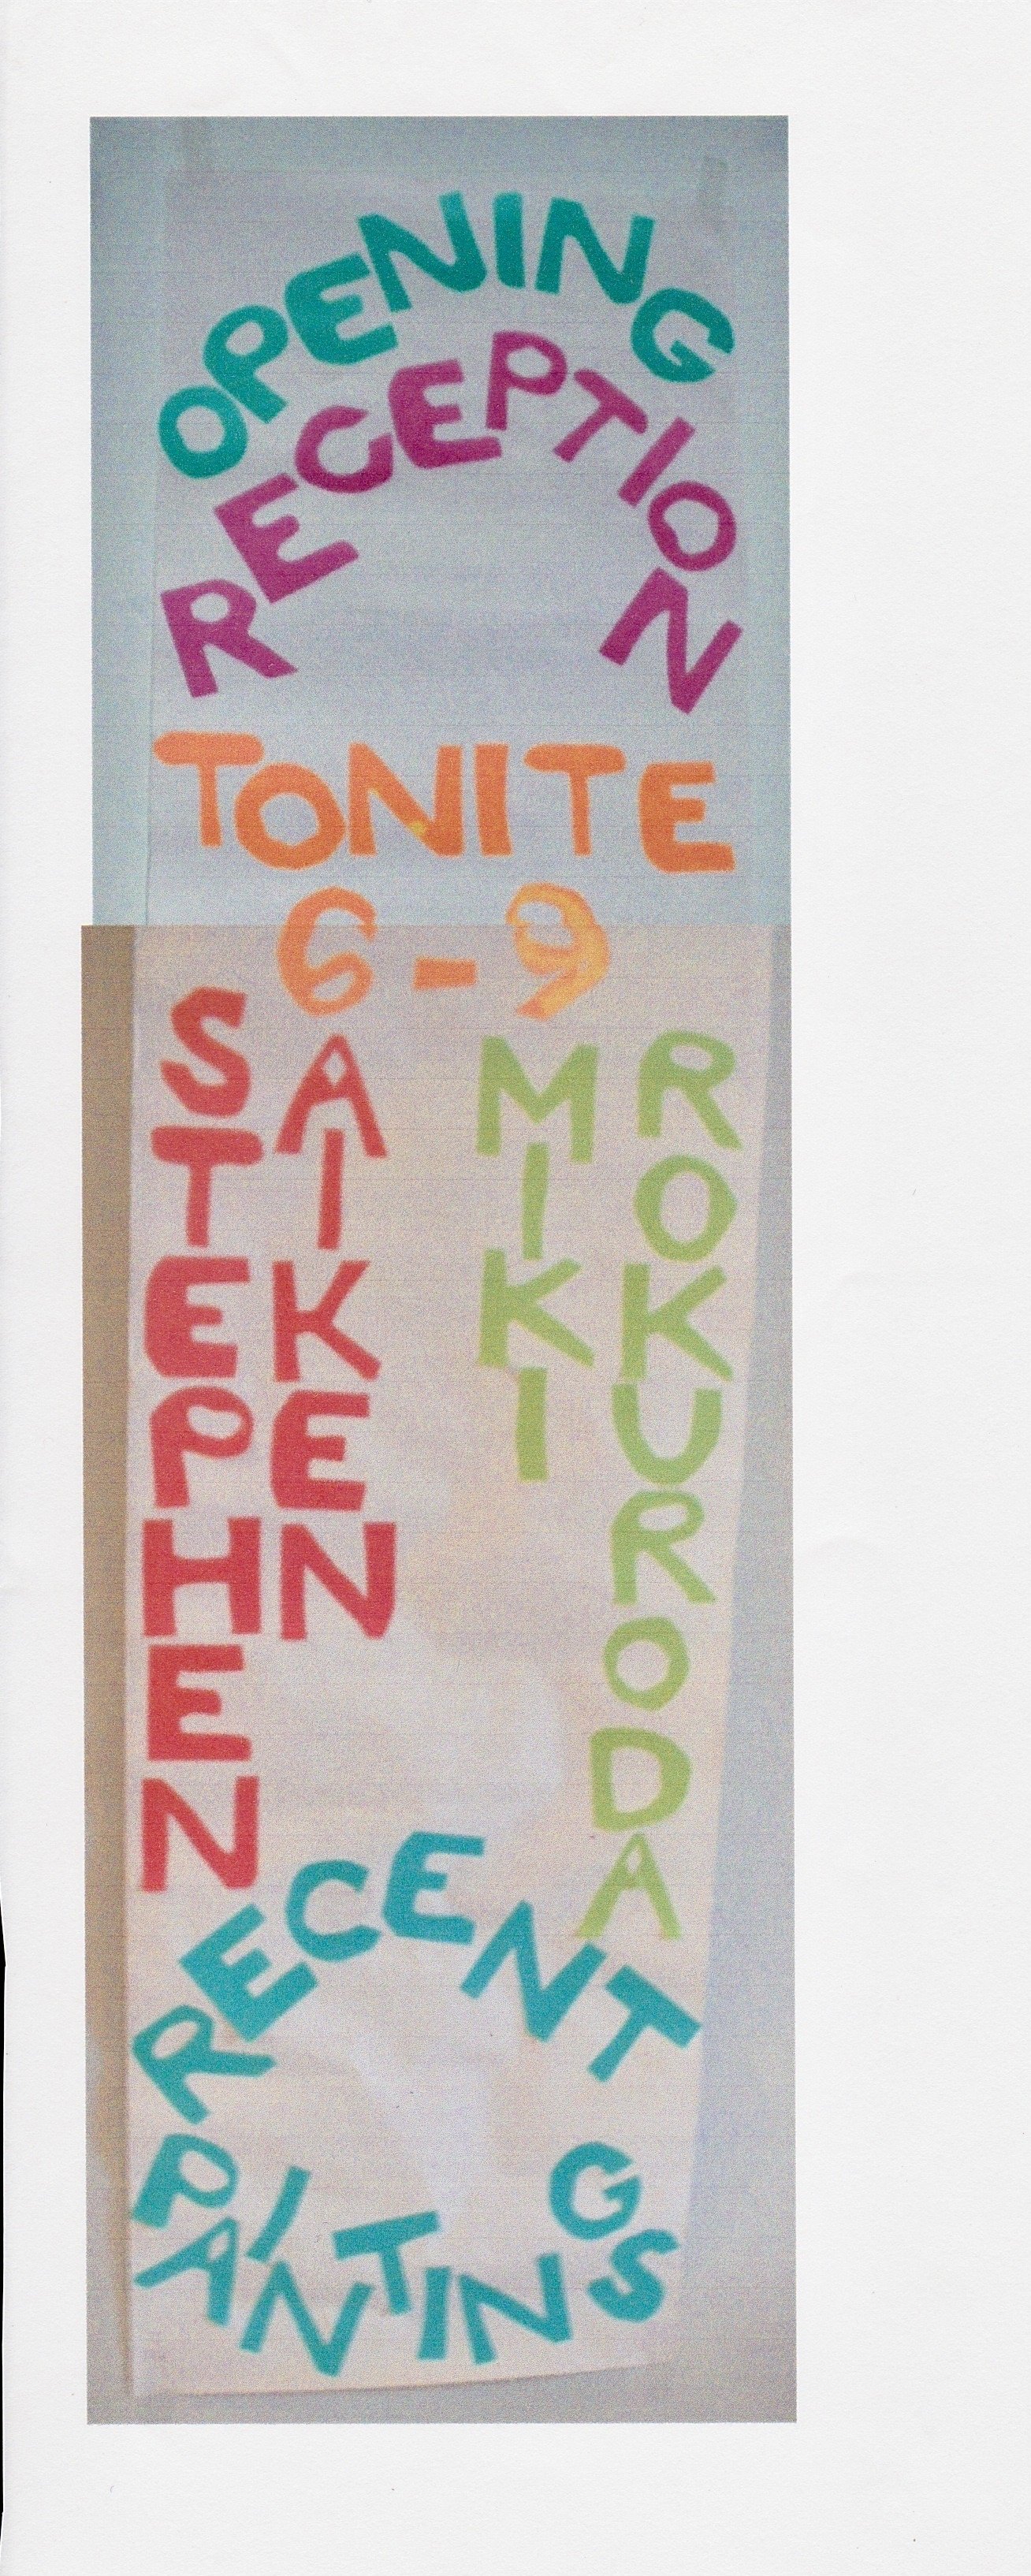 OPENING
RECEPTION
TONITE
6-9
STEPHEN
SAIKEN
MIKI
ROKURODA
RECENT
PAINTINGS